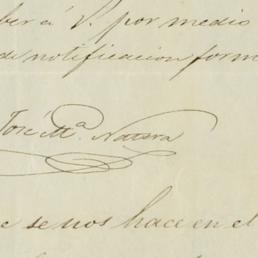 ber á V. por medio
de notificacion form
José Ma. Natera
e se nos hace en el